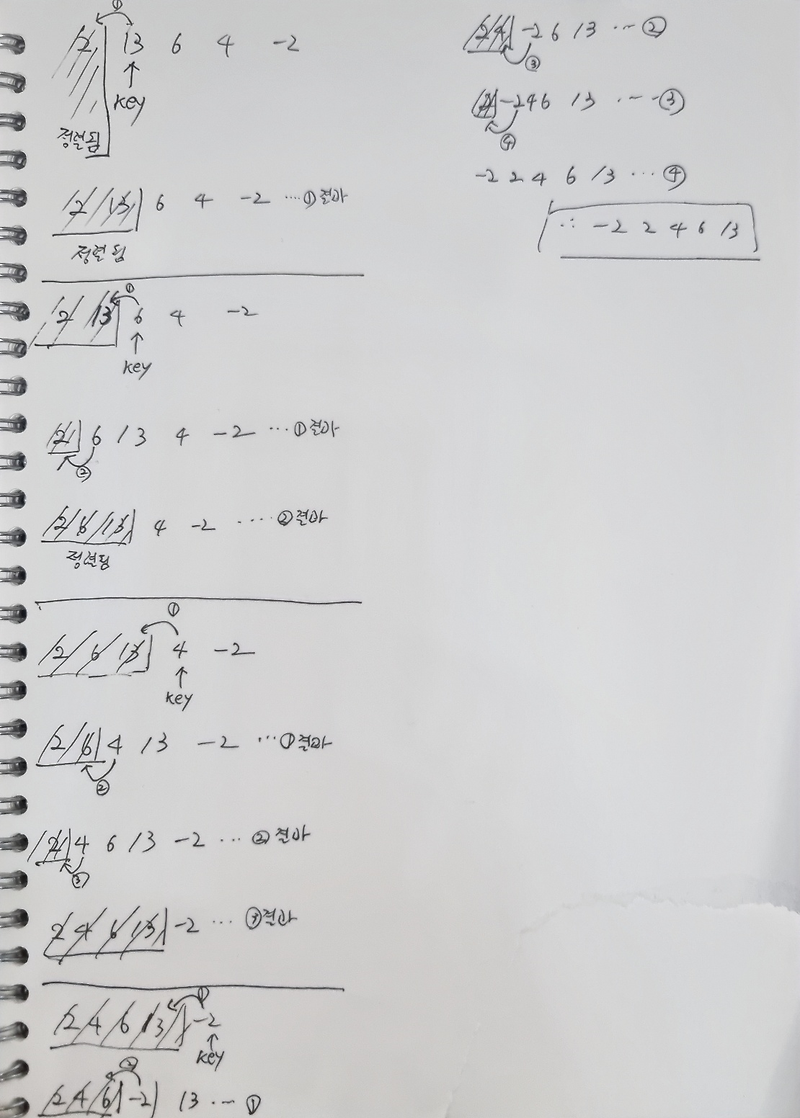 ①
2 13 6 4 -2
key
정렬됨
2 13 6 4 -2 ····① 결과
정렬됨
①
2 13 6 4 -2
key
2 6 13 4 -2 ···①결과
②
2 6 13 4 -2 ····②결과
정렬됨
①
2 6 13 4 -2
key
2 6 4 13 -2 ···①결과
②
2 4 6 13 -2 ···②결과
③
2 4 6 13 -2 ···③결과
①
2 4 6 13 -2
key
②
2 4 6 -2 13 ··· ①
2 4 -2 6 13 ··· ②
③
2 -2 4 6 13 ··· ③
④
-2 2 4 6 13 ··· ④
∴ -2 2 4 6 13